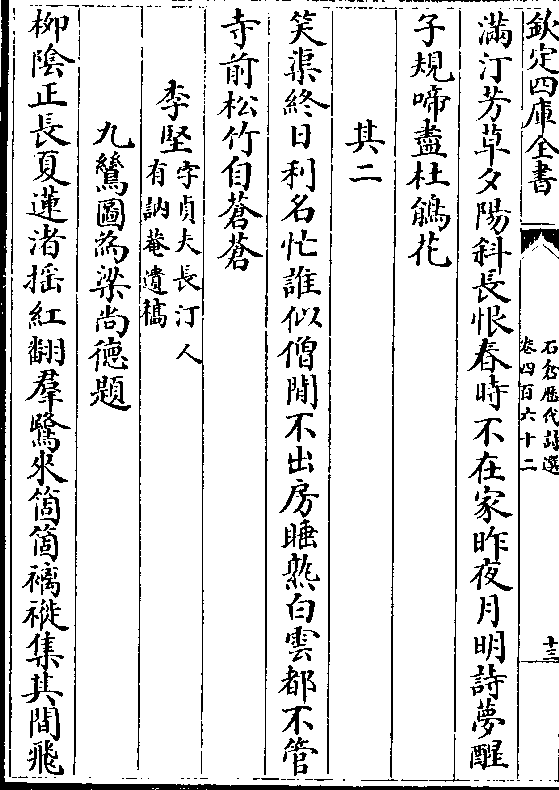 欽定四庫全書
石倉歷代詩選
卷四百六十二
十三
滿汀芳草夕陽斜長恨春時不在家昨夜月明詩夢醒
子規啼盡杜鵑花
其二
笑渠終日利名忙誰似僧閒不出房睡熟白雲都不管
寺前松竹自蒼蒼
李堅字貞夫長汀人
有訥菴遺稿
九鷺圖為梁尚德題
柳陰正長夏蓮渚揺紅翻羣鷺來箇箇褵褷集其間飛